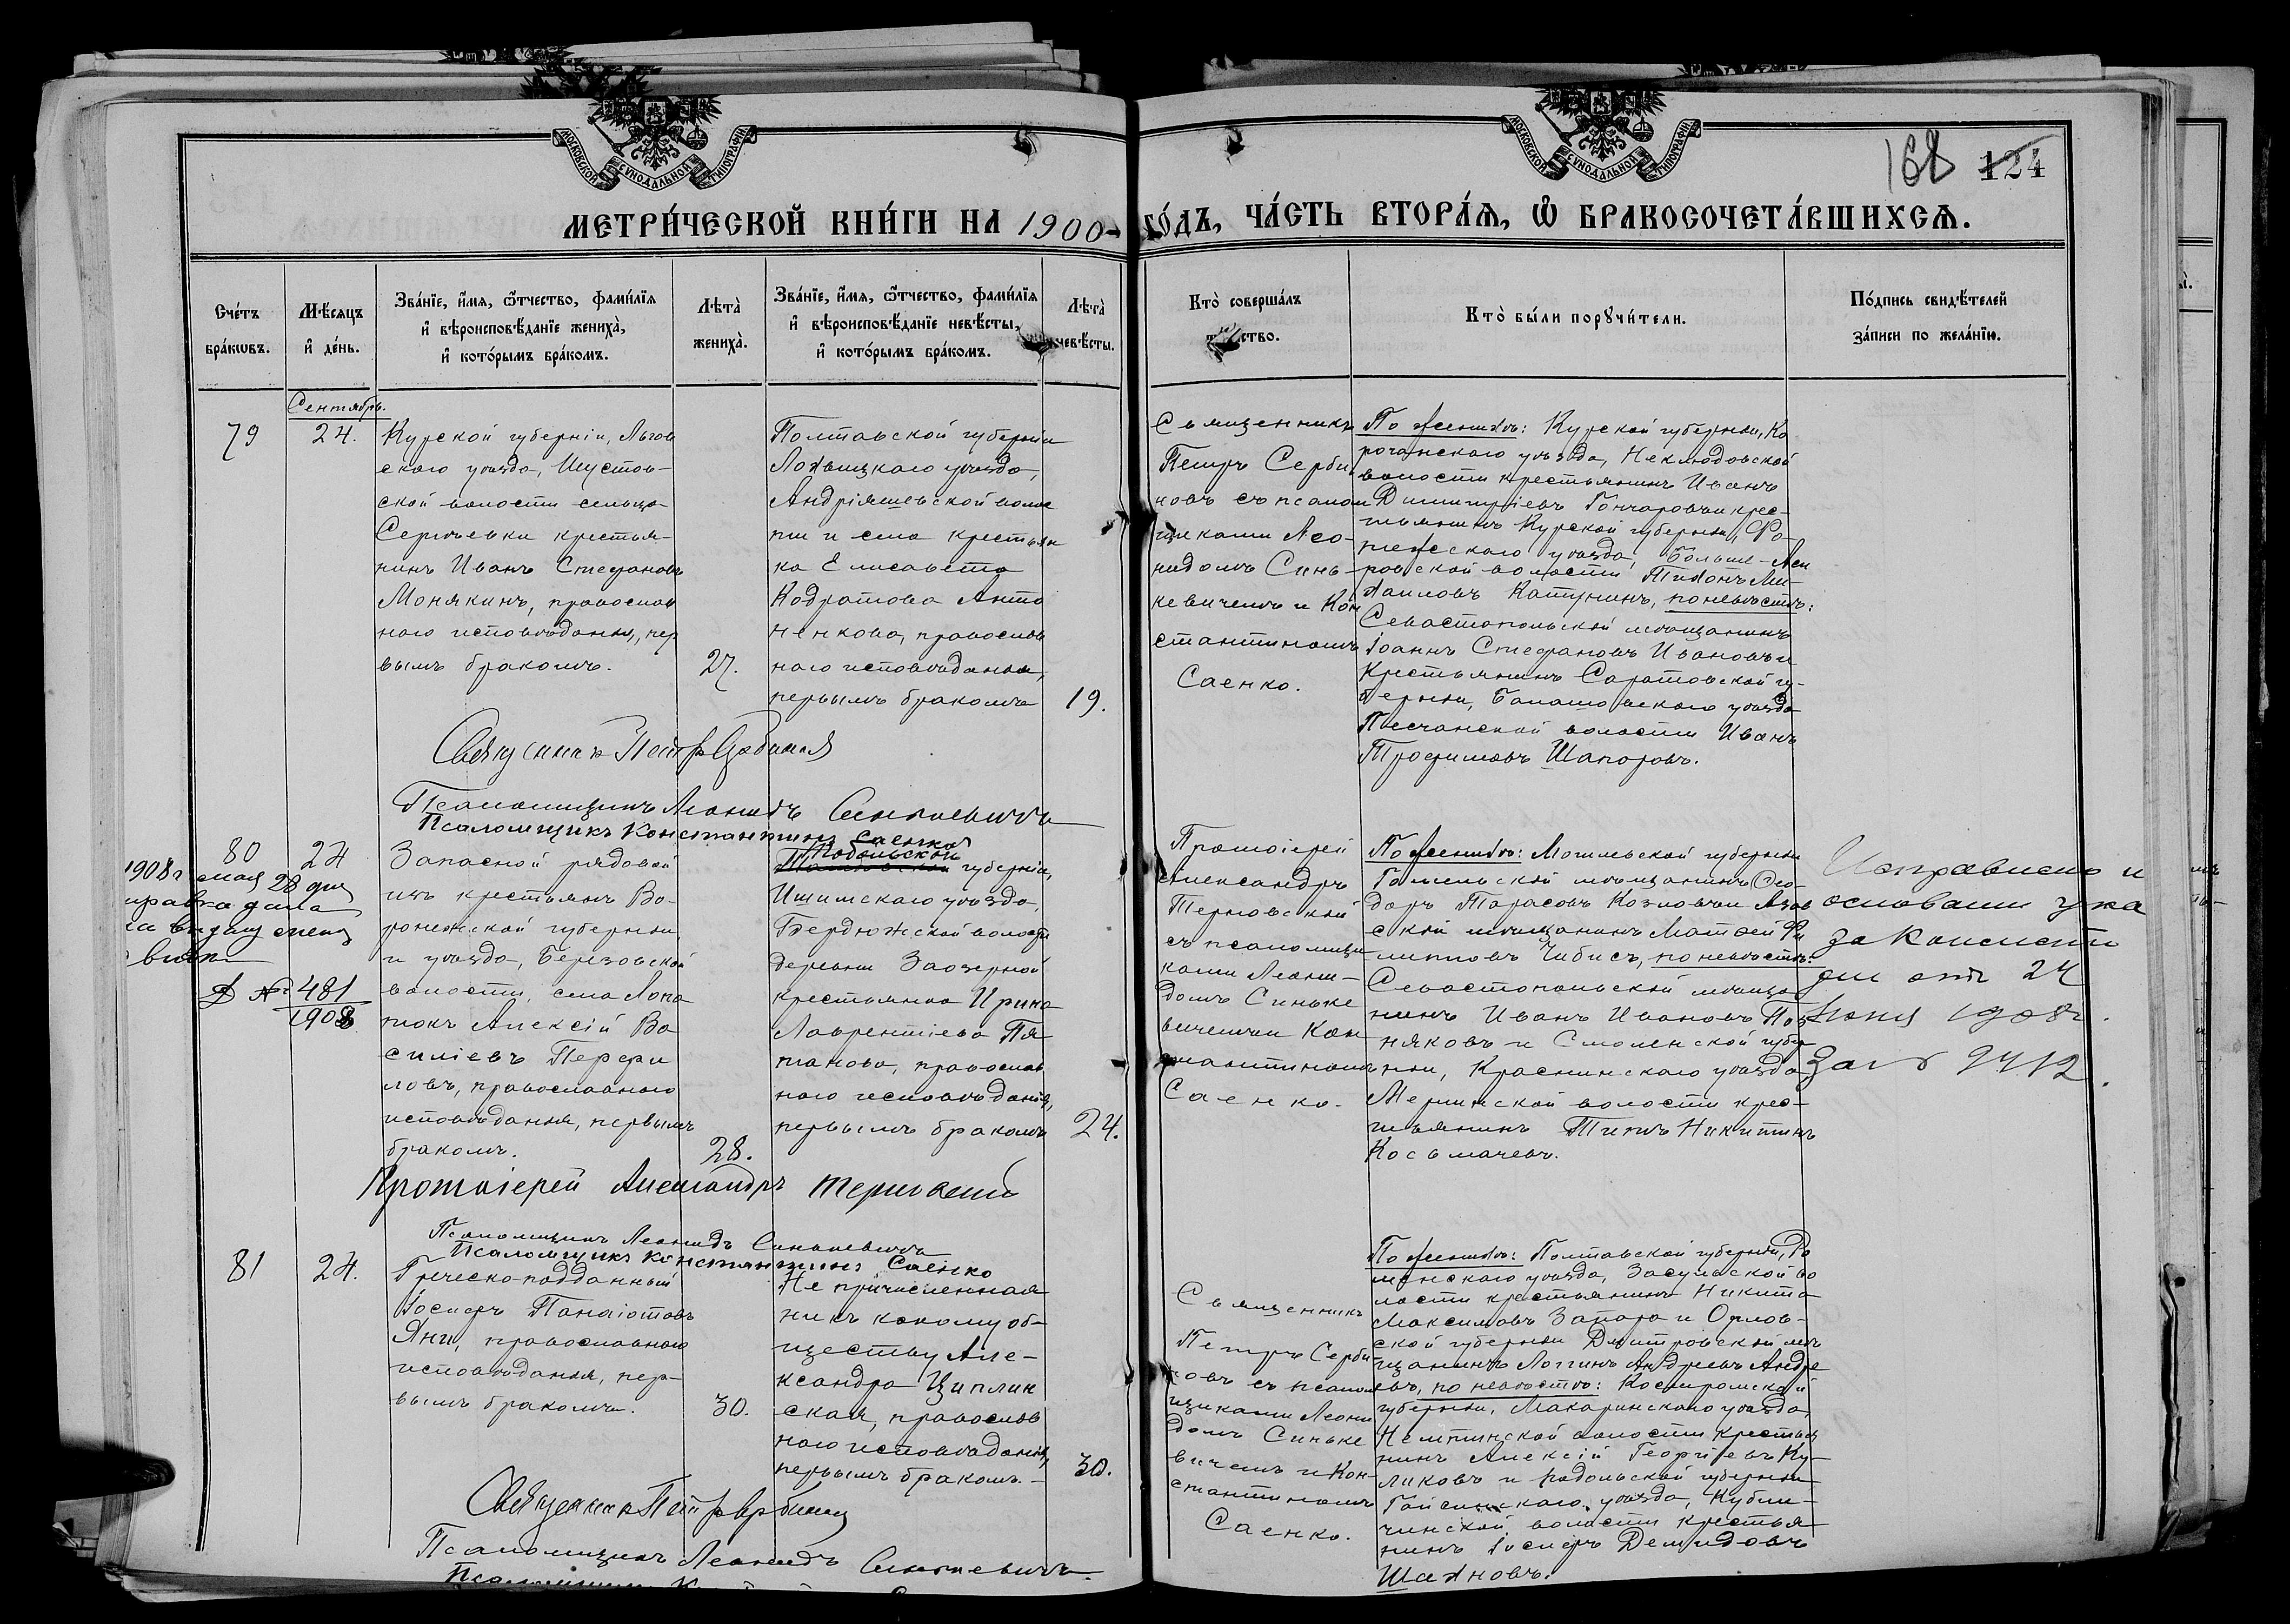 МОСКОВСКОЙ СѴНОДАЛЬНОЙ ТИПОГРАФІИ
МОСКОВСКОЙ СѴНОДАЛЬНОЙ ТИПОГРАФІИ
168 124
МЕТРИ́ЧЕСКОЙ КНИ́ГИ НА 1900 ГО́ДЪ, ЧА́СТЬ ВТОРА́Я, Ѡ҆ БРАКОСОЧЕТА́ВШИХСЯ.
Сче́тъ
бра́кѡвъ.
Мѣ́сяцъ
и҆ де́нь.
Зва́нїе, и҆́мя, ѻ҆́тчество, фами́лїя
и҆ вѣроисповѣ́данїе жениха̀,
и҆ кото́рымъ бра́комъ.
Лѣ́та̀
жениха̀.
Зва́нїе, и҆́мя, ѻ҆́тчество, фами́лїя
и҆ вѣроисповѣ́данїе невѣ́сты,
и҆ кото́рымъ бра́комъ.
Лѣ́та̀
невѣ́сты.
Кто̀ соверша́лъ
Кто̀ бы́ли порꙋчи́тели.
По́дпись свидѣ́телей
за́писи по жела́нїю.
Сентябрь.
79
24.
Курской губерніи, Льгов
скаго уѣзда, Шустов-
ской волости сельца
Сергѣевки крестья-
нинъ Иванъ Стефановъ
Монякинъ, православ
наго исповѣданія, пер
вымъ бракомъ.
27.
Полтавской губерніи
Лохвицкаго уѣзда,
Андріяшевской волос
ти и села крестьян
ка Елисавета
Кодратова Анто
ненкова, православ
наго исповѣданія,
первымъ бракомъ
19.
Священникъ
Петръ Серби
новъ съ псалом
щиками Лео-
нидомъ Синь-
кевичемъ и Кон
стантиномъ
Саенко.
По женихѣ: Курской губерніи, Ко
рочанскаго уѣзда, Неклюдовской
волости крестьянинъ Иванъ
Димитріевъ Гончаровъ и крес-
тьянинъ Курской губерніи, Фа-
тежскаго уѣзда, Больше-
ровской волости Тихонъ Ми-
хаиловъ Катунинъ, по невѣстѣ:
Севастопольскій мѣщанинъ
Іоаннъ Стефановъ Ивановъ и
Крестьянинъ Саратовской гу-
берніи, Балашовскаго уѣзда
Песчанской волости Иванъ
Трофимовъ Шапоровъ.
Священникъ Петръ Сербиновъ
Псаломщикъ Леонидъ Синькевичъ
Псаломщикъ Константинъ Саенко
80
24
1908 г мая 28 дня
№ 481
1908
Запасной рядовой
изъ крестьянъ Во-
ронежской губерніи
и уѣзда, Березовской
волости, села Лопа
токъ Алексій Ва
силіевъ Перфи
ловъ, православнаго
исповѣданія, первымъ
бракомъ.
28.
Тобольской
губерніи,
Ишимскаго уѣзда,
Бердюжской волости
деревни Заозерной
крестьянка Ирина
Лаврентіева Пя
танова, православ
наго исповѣданія,
первымъ бракомъ
24.
Протоіерей
Александръ
Терновскій
съ псаломщи
ками Леони-
домъ Синьке
вичемъ и Кон
стантиномъ
Саенко.
По женихѣ: Могилевской губерніи
Гомельскій мѣщанинъ Ѳео-
доръ Тарасовъ Козловъ и Азов
скій мѣщанинъ Матѳей Фи
липповъ Чибисъ, по невѣстѣ:
Севастопольскій мѣща
нинъ Иванъ Ивановъ Поз
няковъ и Смоленской губер
ніи, Краснинскаго уѣзда
Мерлинской волости крес-
тьянинъ Титъ Никитинъ
Косьмачевъ.
Исправлено и
основаніи ука
за Консисто
ріи отъ 24
Іюня 1908 г.
за №
Протоіерей Александръ Терновскій
Псаломщикъ Леонидъ Синькевичъ
Псаломщикъ Константинъ Саенко
81
24.
Греческо-подданный
Іосифъ Панаіотовъ
Яни, православнаго
исповѣданія, пер-
вымъ бракомъ.
30.
Не причисленная
ни къ какому об-
ществу Але-
ксандра Циплин
ская, православ
наго исповѣданія,
первымъ бракомъ.-
30.
Священникъ
Петръ Серби
новъ съ псалом
щиками Леони
домъ Синьке
вичемъ и Кон-
стантиномъ
Саенко.
По женихѣ: Полтавской губерніи, Ро
менскаго уѣзда, Засульской во
лости крестьянинъ Никита
Максимовъ Запара и Орлов-
ской губерніи Дмитровскій мѣ
щанинъ Логгинъ Андреевъ Андре
евъ, по невѣстѣ: Костромской
губерніи, Макарьинскаго уѣзда,
волости крестья
нинъ Алексій Георгіевъ Ку-
ликовъ и Подольской губерніи
Гайсинскаго уѣзда, Кубли-
чинской волости крестья
нинъ Іосифъ Демидовъ
Шахновъ.
Священникъ Петръ Сербиновъ
Псаломщикъ Леонидъ Синькевичъ.